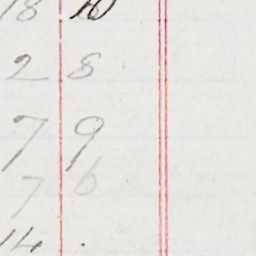 18 10
2 8
7 9
7 6
14 .